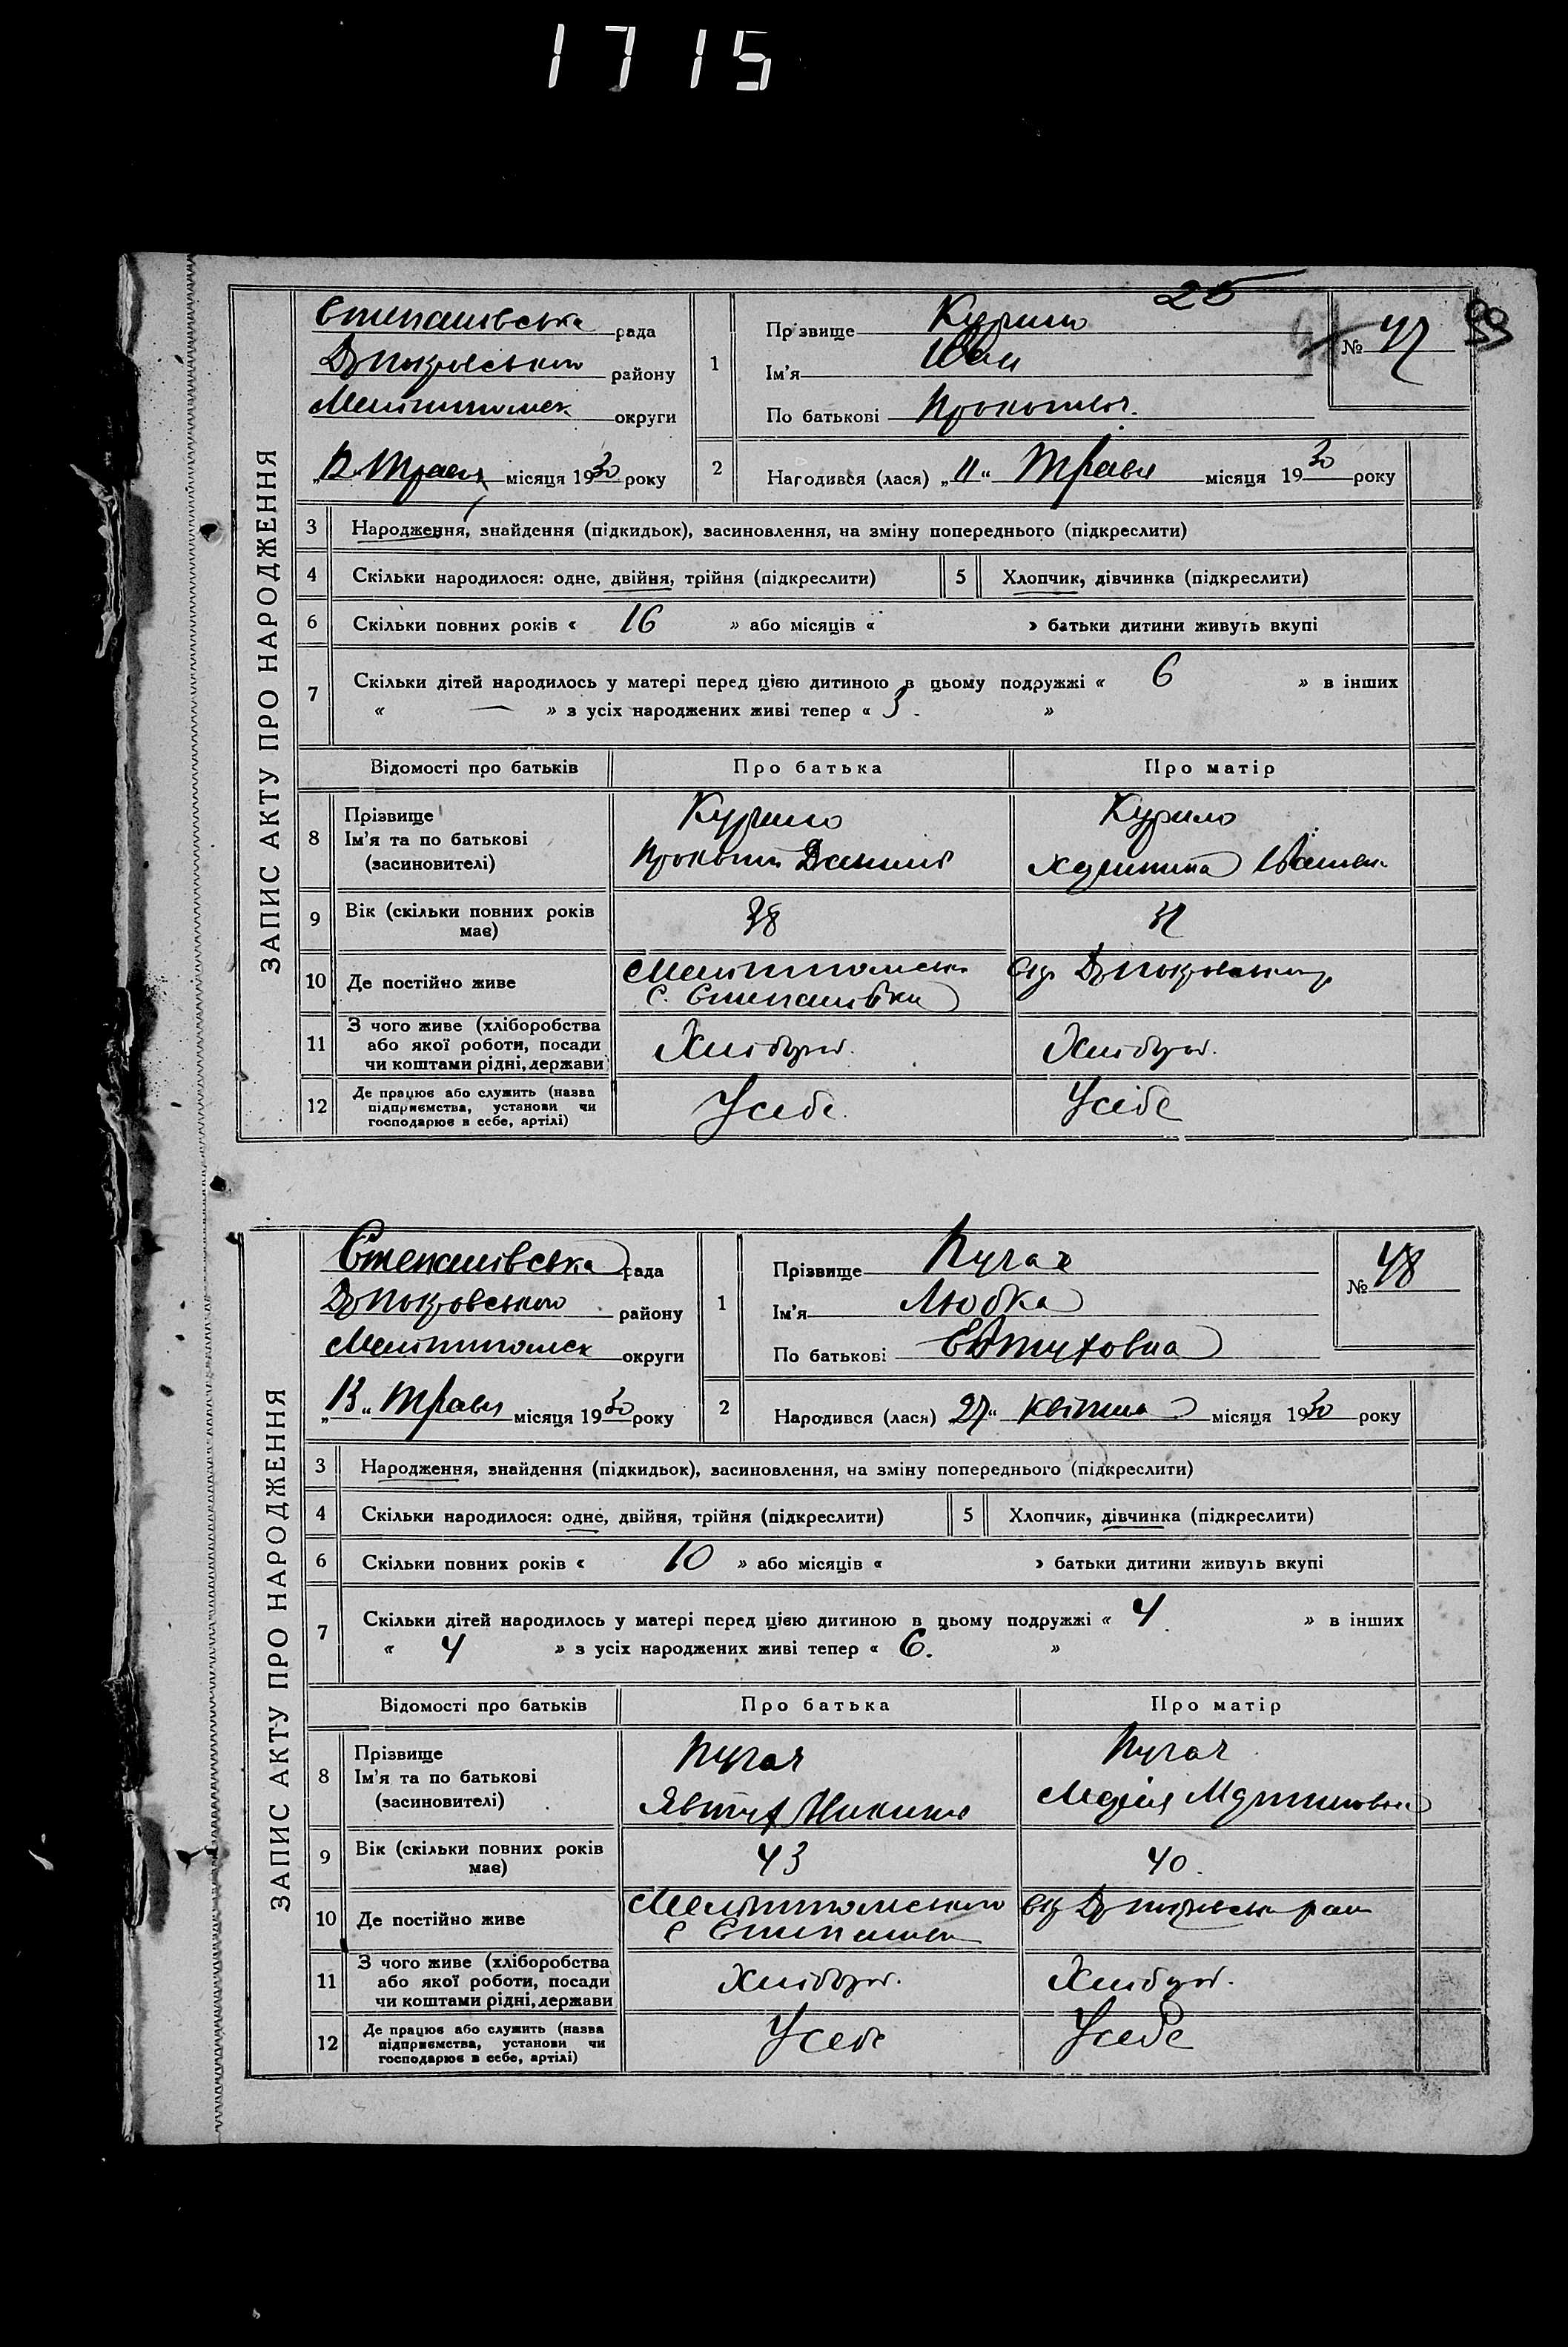 1715
25
99
ЗАПИС АКТУ ПРО НАРОДЖЕННЯ
Степанівська рада
Дпокровського району
Мелітпольск округи
„12“ Травня місяця 1930 року
1
Прізвище Курило
Ім’я Іван
По батькові Прокопович.
№ 47
2
Народився (лася) „11“ Травня місяця 1930 року
3 Народження, знайдення (підкидьок), васиновлення, на зміну попереднього (підкреслити)
4 Скільки народилося: одне, двійня, трійня (підкреслити)
5 Хлопчик, дівчинка (підкреслити)
6 Скільки повних років « 16 » або місяців « » батьки дитини живуть вкупі
7 Скільки дітей народилось у матері перед цією дитиною в цьому подружжі « 6 » в інших
« — » з усіх народжених живі тепер « 3. »
Відомості про батьків Про батька Про матір
8 Прізвище
Ім’я та по батькові
(васиновителі)
Курило
Прокопій
Курило
9 Вік (скільки повних років має)
38
10 Де постійно живе
с. Степанівка
11 З чого живе (хліборобства або якої роботи, посади чи коштами рідні, держави
Хлібороб.
Хлібороб.
12 Де працює або служить (назва підприємства, установи чи господарює в себе, артілі)
Усебе.
Усебе
ЗАПИС АКТУ ПРО НАРОДЖЕННЯ
Степанівська рада
Дпокровського району
Мелітпольск округи
„13“ Травня місяця 1930 року
1
Прізвище Пугач
Ім’я Любка
По батькові Євтуховна
№ 48
2
Народився (лася) 27“ Квітня місяця 1930 року
3 Народження, знайдення (підкидьок), васиновлення, на зміну попереднього (підкреслити)
4 Скільки народилося: одне, двійня, трійня (підкреслити)
5 Хлопчик, дівчинка (підкреслити)
6 Скільки повних років « 10 » або місяців « » батьки дитини живуть вкупі
7 Скільки дітей народилось у матері перед цією дитиною в цьому подружжі « 4 » в інших
« 4 » з усіх народжених живі тепер « 6. »
Відомості про батьків Про батька Про матір
8 Прізвище
Ім’я та по батькові
(васиновителі)
Пугач
Явтух
Пугач
Марія Мартиновна
9 Вік (скільки повних років має)
43
40.
10 Де постійно живе
11 З чого живе (хліборобства або якої роботи, посади чи коштами рідні, держави
Хлібороб.
Хлібороб.
12 Де працює або служить (назва підприємства, установи чи господарює в себе, артілі)
Усебе
Усебе